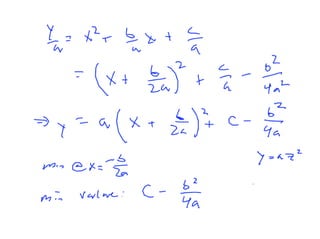 y/a = x² + b/a x + c/a
= (x + b/2a)² + c/a - b²/4a²
⇒ y = a(x + b/2a)² + c - b²/4a
y = az²
min @ x = -b/2a
min value: c - b²/4a